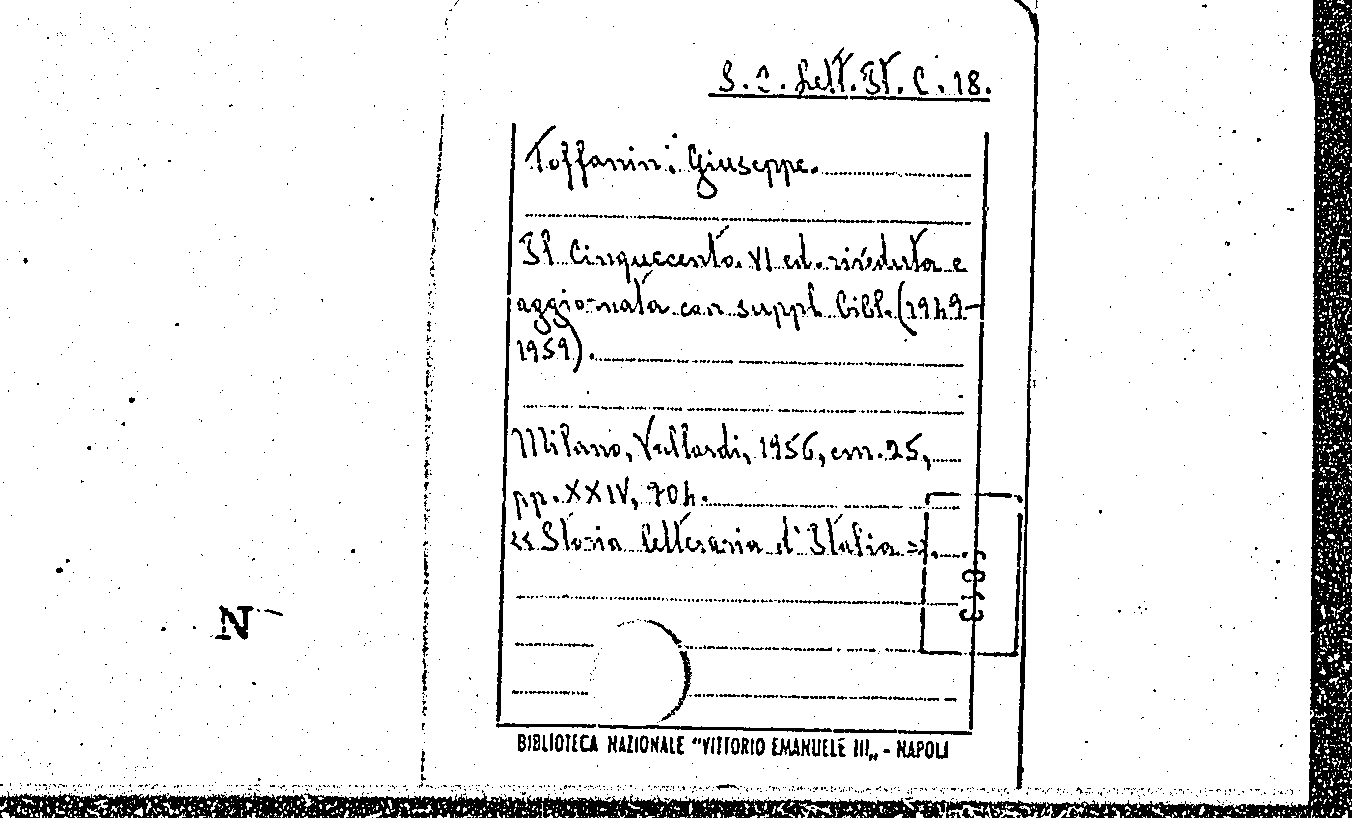 S. C. Lett. It. C. 18.
Toffanin: Giuseppe.
Il Cinquecento. VI ed. riveduta e
aggiornata con suppl. bibl. (1949-
1959).
Milano, Vallardi, 1956, cm. 25,
pp. XXIV, 704.
«Storia letteraria d'Italia».
N
BIBLIOTECA NAZIONALE "VITTORIO EMANUELE III„ - NAPOLI